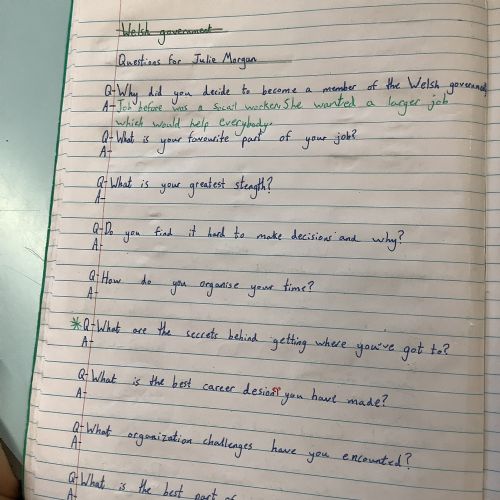 Welsh government
Questions for Julie Morgan
Q-Why did you decide to become a member of the Welsh government
A-Job before was a social worker. She wanted a larger job
which would help everybody.
Q-What is your favourite part of your job?
A-
Q-What is your greatest stength?
A-
Q-Do you find it hard to make decisions and why?
A-
Q-How do you organise your time?
A-
*Q-What are the secrets behind getting where you've got to?
A-
Q-What is the best career desion you have made?
A-
Q-What organization challenges have you encounted?
A-
Q-What is the best part of
A-